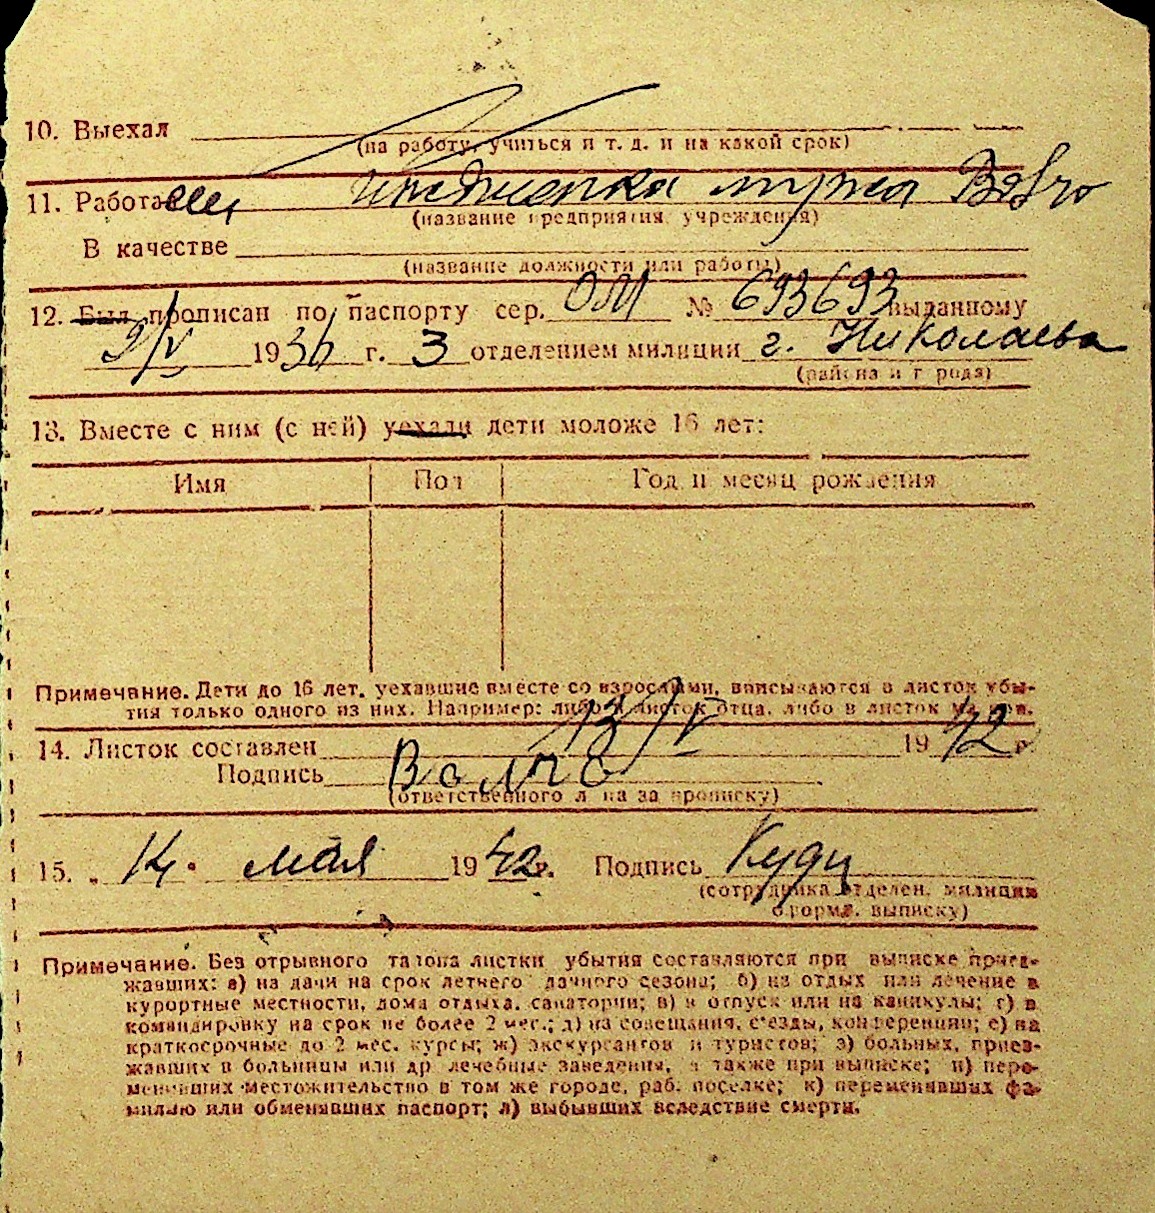 10. Выехал
(на работу, учиться и т. д. и на какой срок)
11. Работа иждивенка мужа
(название предприятия, учреждения)
В качестве
(название должности или работы)
12. Был прописан по паспорту сер. ОМ № 693693 выданному
9/V 1936 г. 3 отделением милиции г. Николаева
(района и города)
13. Вместе с ним (с ней) уехали дети моложе 16 лет:
Имя Пол Год и месяц рождения
Примечание. Дети до 16 лет, уехавшие вместе со взрослыми, вписываются в листок убы-
тия только одного из них. Например: либо в листок отца, либо в листок
14. Листок составлен 13/V 1942 г.
Подпись
(ответственного лица за прописку)
15. „14" мая 1942 г. Подпись
(сотрудника отделен. милиции
оформл. выписку)
Примечание. Без отрывного талона листки убытия составляются при выписке приез-
жавших: а) на дачи на срок летнего дачного сезона; б) на отдых или лечение в
курортные местности, дома отдыха, санатории; в) в отпуск или на каникулы; г) в
командировку на срок не более 2 мес.; д) на совещания, с'езды, конференции; е) на
краткосрочные до 2 мес. курсы; ж) экскурсантов и туристов; з) больных, приез-
жавших в больницы или др лечебные заведения, а также при выписке; и) пере-
менивших местожительство в том же городе, раб. поселке; к) переменивших фа-
милию или обменявших паспорт; л) выбывших вследствие смерти.